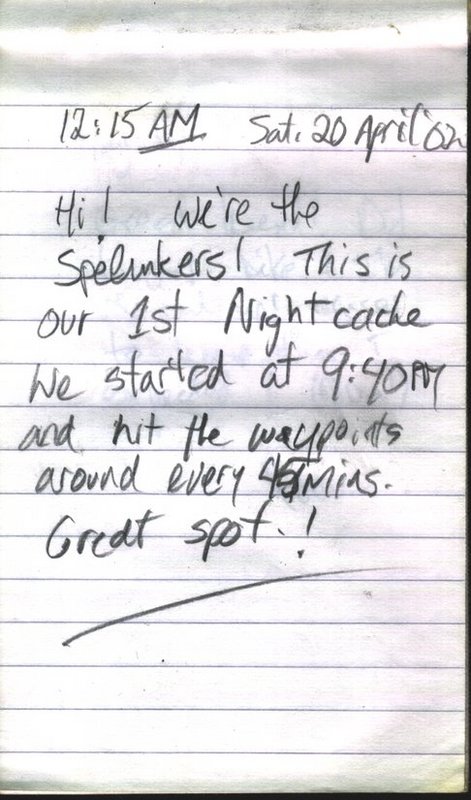 12:15 AM Sat. 20 April '02
Hi! We're the
Spelunkers! This is
our 1st Nightcache
We started at 9:40PM
and hit the waypoints
around every 45Mins.
Great spot.!